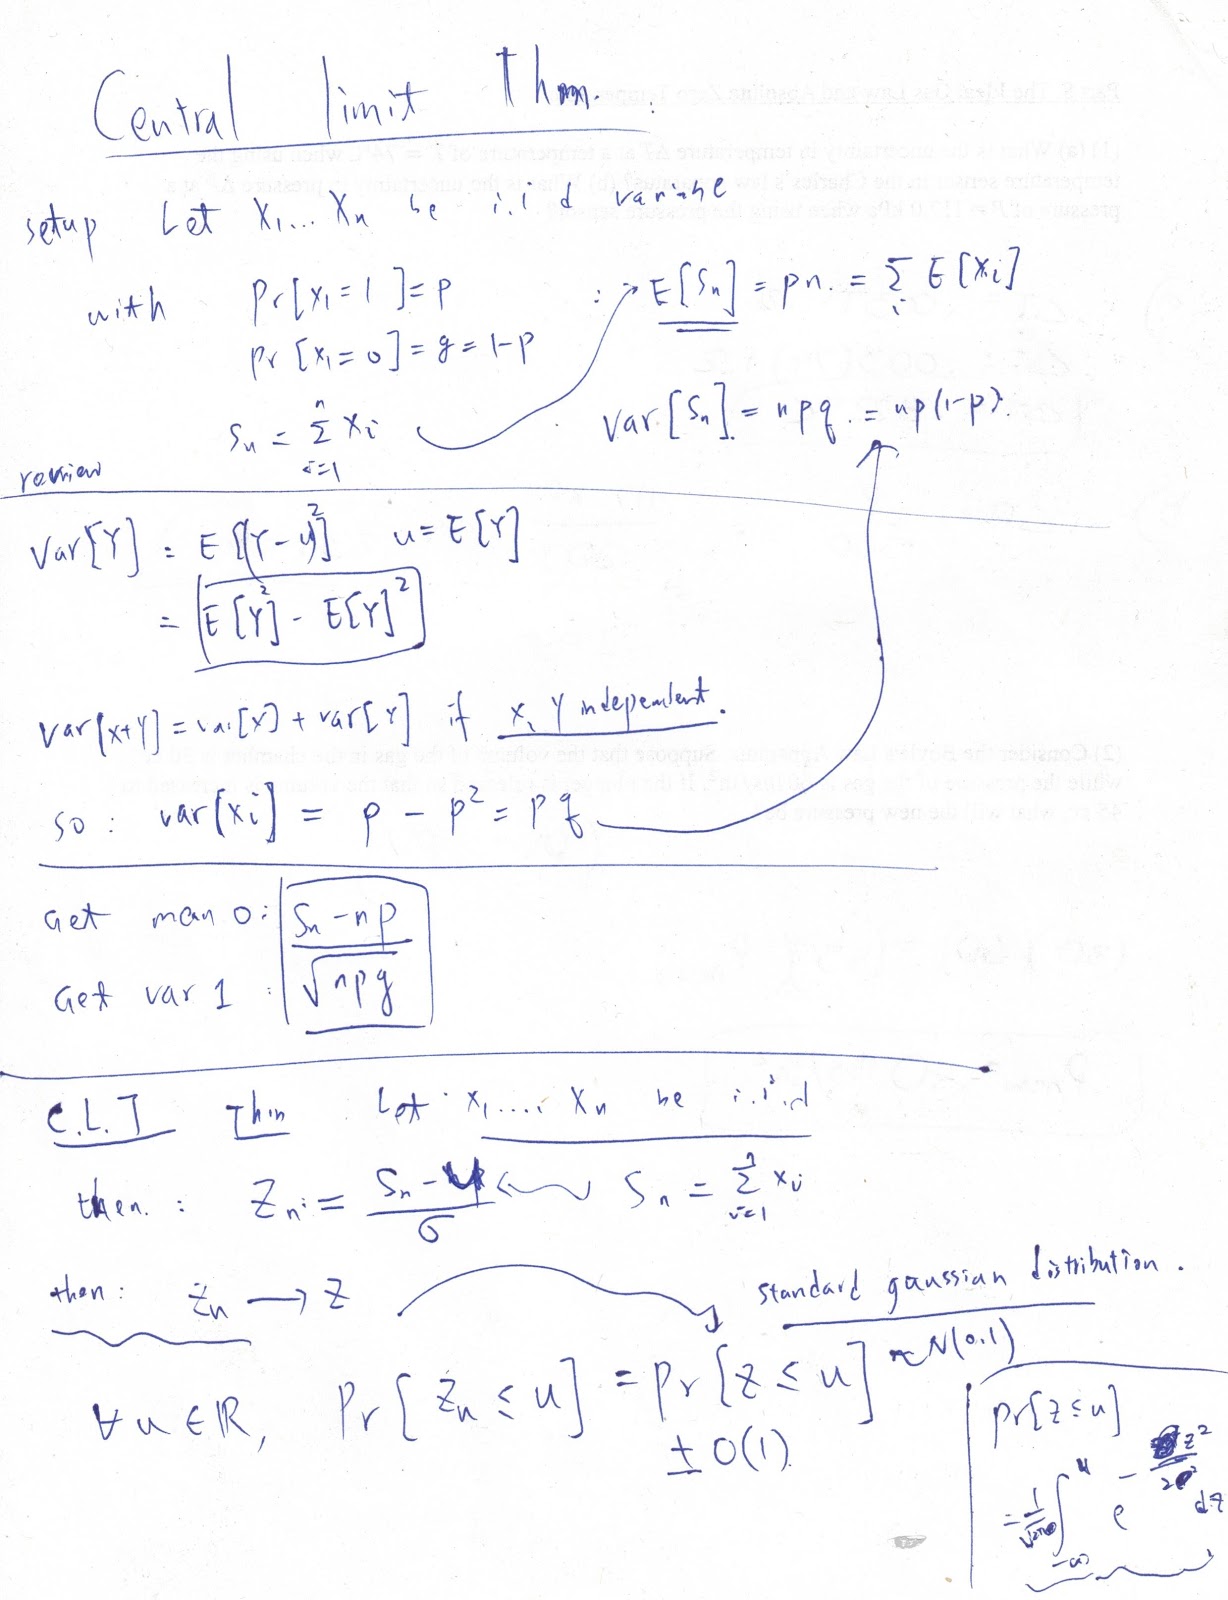 Central limit Thm.
setup Let X₁... Xn be i.i.d variable
with Pr[X₁=1]=p
∴ E[Sn] = pn. = Σᵢ E[Xi]
Pr[X₁=0]=q=1-p
Sn = Σⁿᵢ₌₁ Xi
Var[Sn] = npq. = np(1-p).
review
Var[Y] = E[(Y-u)²] u=E[Y]
= E[Y²] - E[Y]²
Var[X+Y]=var[X]+var[Y] if X, Y independent.
so: var[Xi] = p - p² = pq
Get mean 0: Sn-np
Get var 1: √npq
C.L.T Thm Let X₁.... Xn be i.i.d
then: Zn := (Sn-u)/σ Sn = Σⁿᵢ₌₁ Xi
then: Zn → Z
standard gaussian distribution.
~N(0,1)
∀u∈ℝ, Pr[Zn≤u] = Pr[Z≤u]
± o(1)
Pr[Z≤u]
= 1/√2π ∫ᵘ₋∞ e^(-z²/2) dz